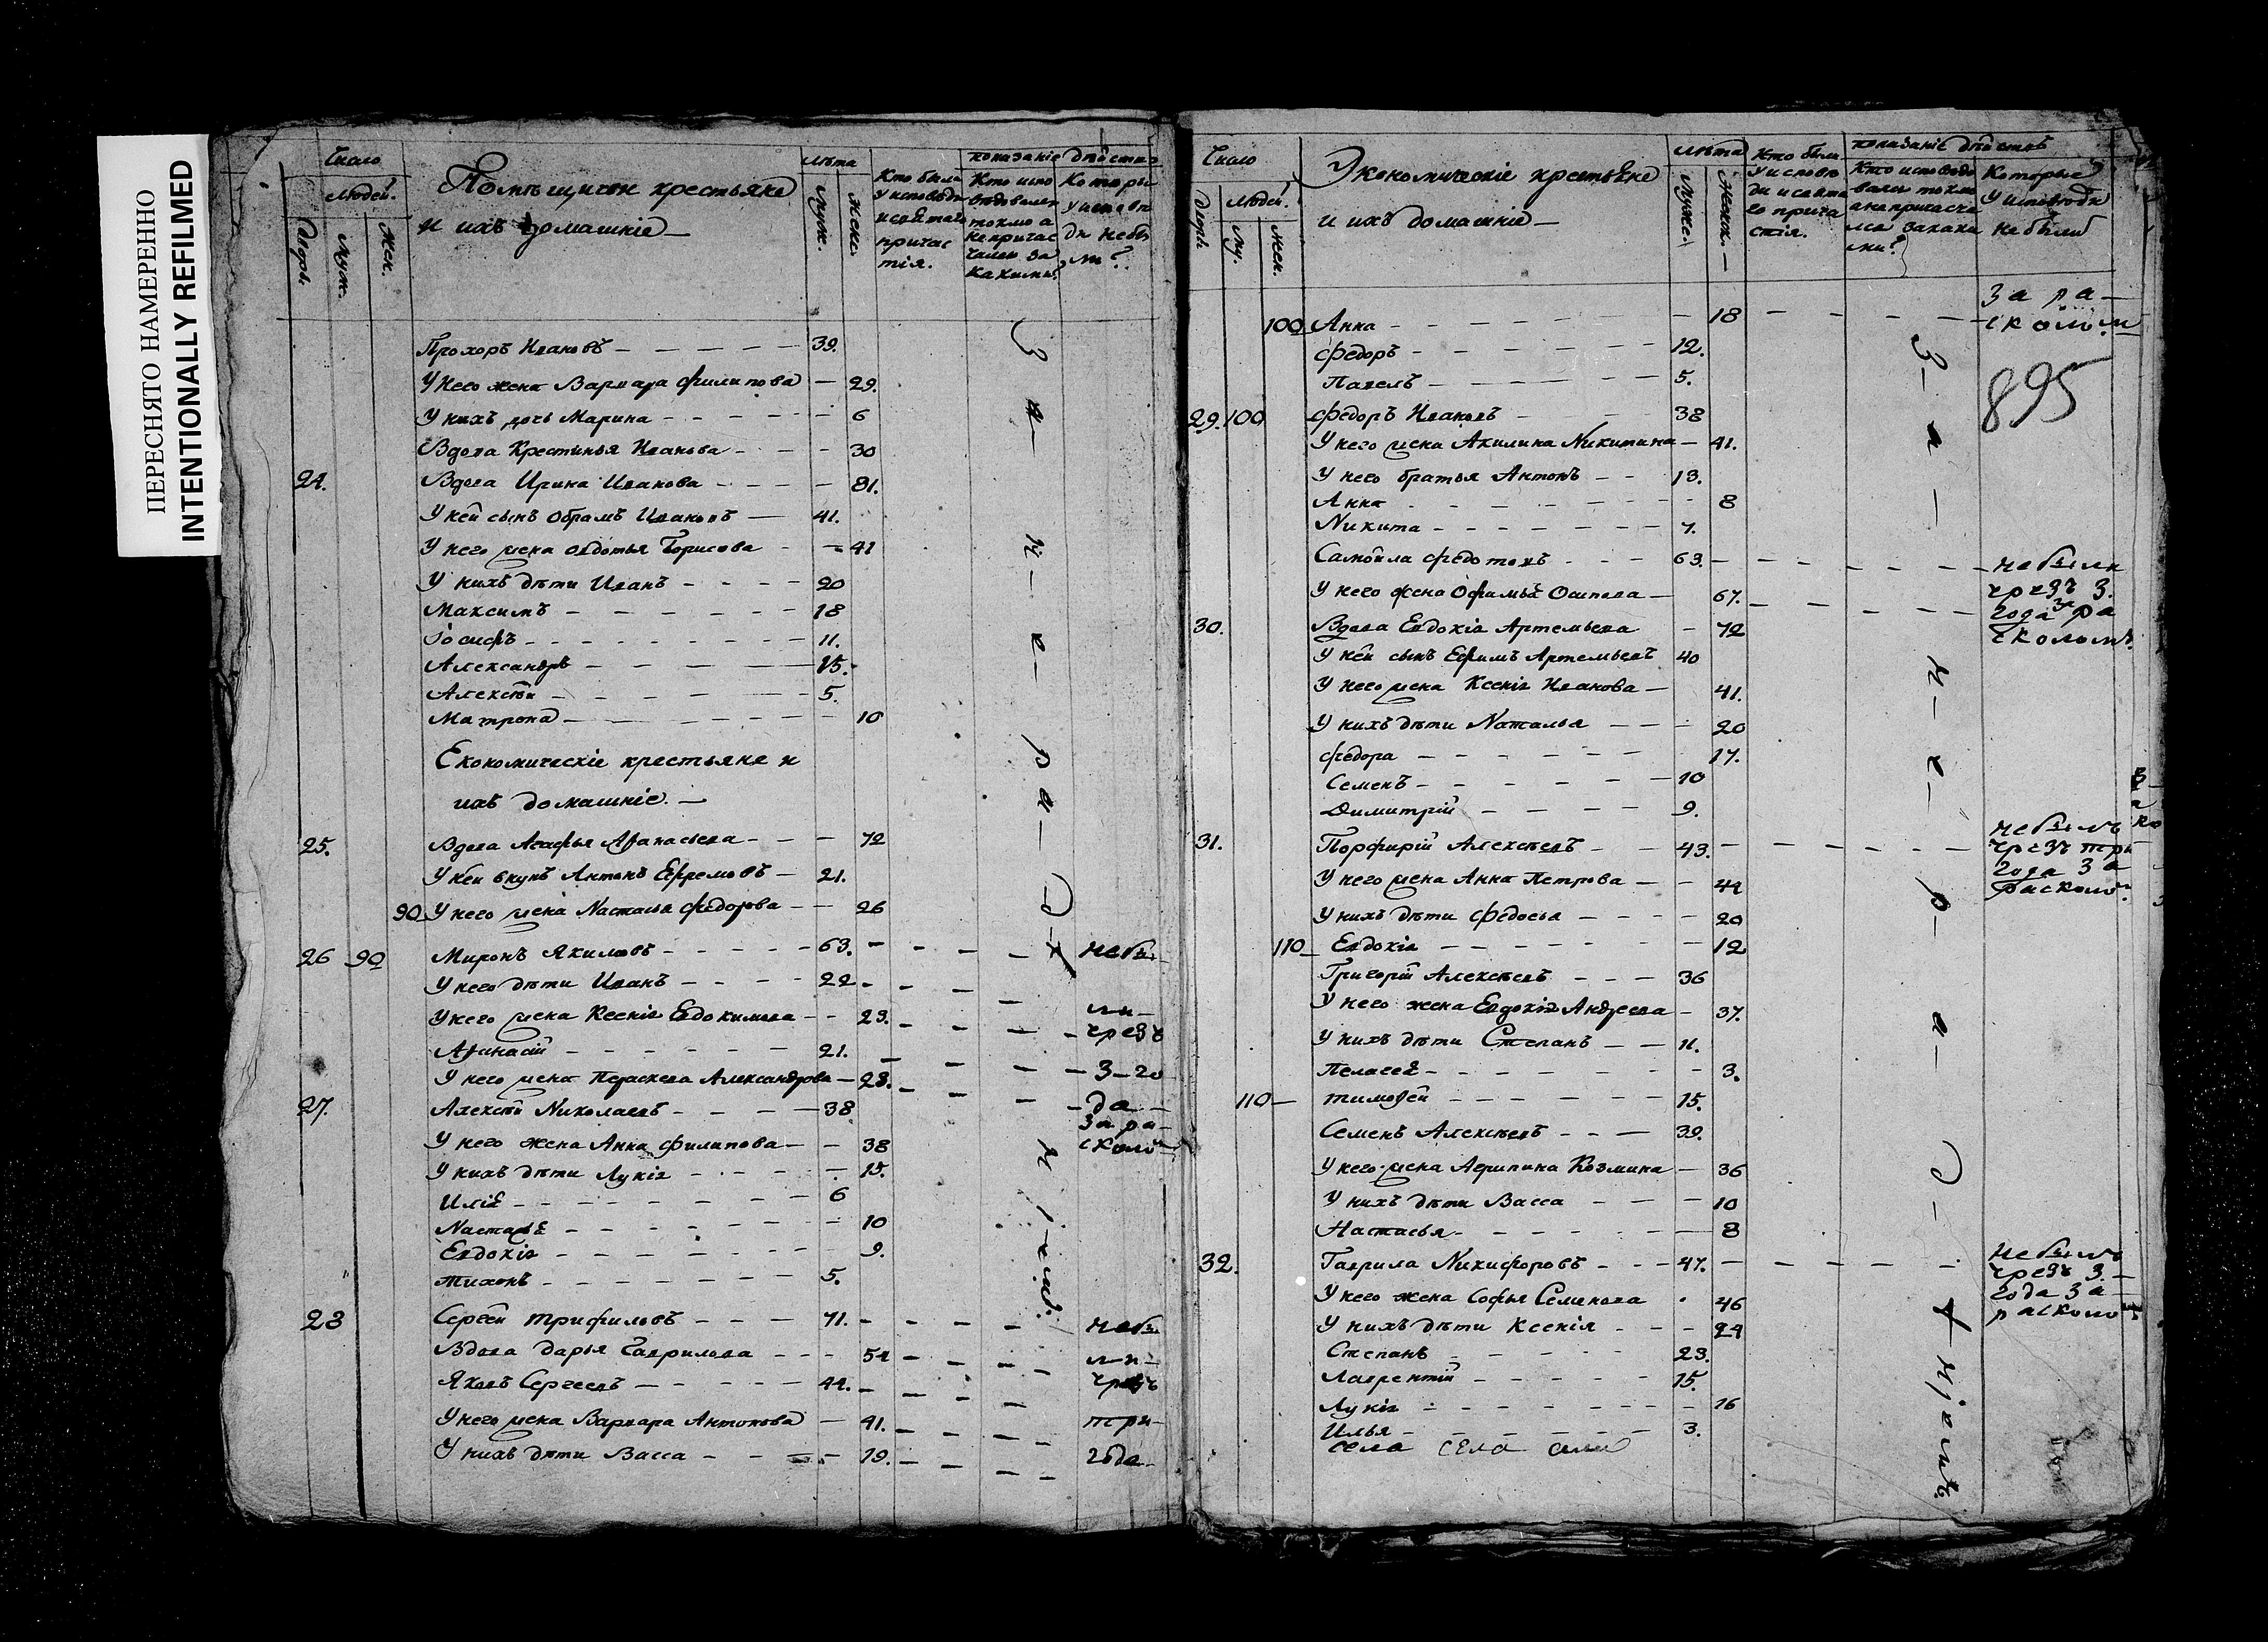 ПЕРЕСНЯТО НАМЕРЕННО
INTENTIONALLY REFILMED
Число
людей.
дворъ.
муж.
жен.
Помѣщичьи крестьяне
и ихъ домашніе —
лѣта
муж.
жен.
Кто были
у исповѣди
и святаго
причас
тія.
показаніе дѣйства
Кто испо
вѣдовален
токмо а
не причас
тален за
какими?
Которы
у исповѣ
ди небы
ли?
Прохоръ Ивановъ — 39.
У него жена Варвара Филипова — 29.
У нихъ дочь Марина — 6
Вдова Крестинья Иванова — 30
24. Вдова Ирина Иванова — 81.
У ней сынъ Обрамъ Ивановъ — 41.
У него жена Овдотья Борисова — 41
У нихъ дѣти Иванъ — 20
Максимъ — 18
Іосифъ — 11.
Александръ — 15.
Алексѣй — 5.
Матрона — 10
Економическіе крестьяне и
ихъ домашніе. —
25. Вдова Агафья Афанасьева — 72
У ней внукъ Антонъ Ефремовъ — 21.
90 У него жена Настасья Федорова — 26
26 90 Миронъ Якимовъ — 63. — небы
У него дѣти Иванъ — 22
У него жена Ксенія Евдокимова — 23. ли — чрезъ
Афанасій — 21.
У него жена Параскева Александрова — 23. — 3 — го
27. Алексѣй Николаевъ — 38 — да —
У него жена Анна Филипова — 38 за ра — сколо
У нихъ дѣти Лукія — 15.
Илія — 6
Настасья — 10
Евдокія — 9.
Тихонъ — 5.
28 Сергѣй Трифиловъ — 71. — небы
Вдова Дарья Гаврилова — 54 — ли —
Яковъ Сергеевъ — 44. — чрезъ
У него жена Варвара Антонова — 41. — три —
У нихъ дѣти Васса — 19. — года —
Число
людей.
дворъ.
му.
жен.
Экономическіе крестьяне
и ихъ домашніе —
лѣта
муже.
женс. —
Кто были
у исповѣ
ди и свята
го прича
стія.
показаніе дѣйствъ
Кто исповѣдо
вали токмо
а не причасти
лся за како
ми?
Которые
у исповѣди
не были
100 Анна — 18 — за ра — сколом
Федоръ — 12.
895
Павелъ — 5.
29. 100 Федоръ Ивановъ — 38
У него жена Акилина Никитина — 41.
У него братья Антонъ — 13.
Анна — 8
Никита — 7.
Самойла Федотовъ — 63. — небыли
У него жена Офимья Осипова — 67. чрезъ 3. года за ра
30. Вдова Евдокія Артемьева — 72 сколомъ.
У ней сынъ Ефимъ Артемьевъ 40
У него жена Ксенія Иванова — 41.
У нихъ дѣти Наталья — 20
Федора — 17.
Семенъ — 10
Димитрій — 9.
31. Порфирій Алексѣевъ — 43. — небылъ чрезъ три
У него жена Анна Петрова — 44 года за расколо
У нихъ дѣти Федосья — 20
110 Евдокія — 12
Григорій Алексѣевъ — 36
У него жена Евдокія Андреева — 37.
У нихъ дѣти Степанъ — 11.
Пелагея — 3.
110 — Тимофей — 15.
Семенъ Алексѣевъ — 39.
У него жена Агрипина Козмина — 36
У нихъ дѣти Васса — 10
Настасья — 8
32. Гаврила Никифоровъ — 47. — небылъ чрезъ 3. —
У него жена Софья Семенова 46 года за — расколо
У нихъ дѣти Ксенія — 24
Степанъ — 23.
Лаврентій — 15.
Лукія — 16
Илья — 3.
села села